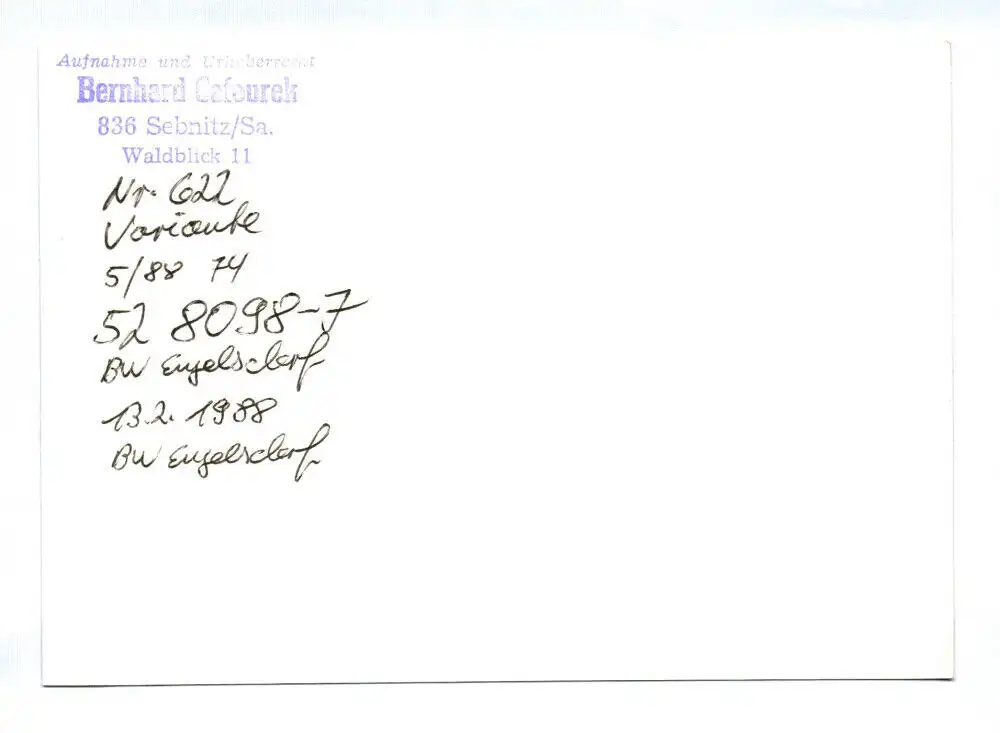 Aufnahme und Urheberrecht
Bernhard
836 Sebnitz/Sa.
Waldblick 11
Nr. 622
Variante
5/88 74
52 8098-7
BW Engelsdorf
13.2. 1988
BW Engelsdorf